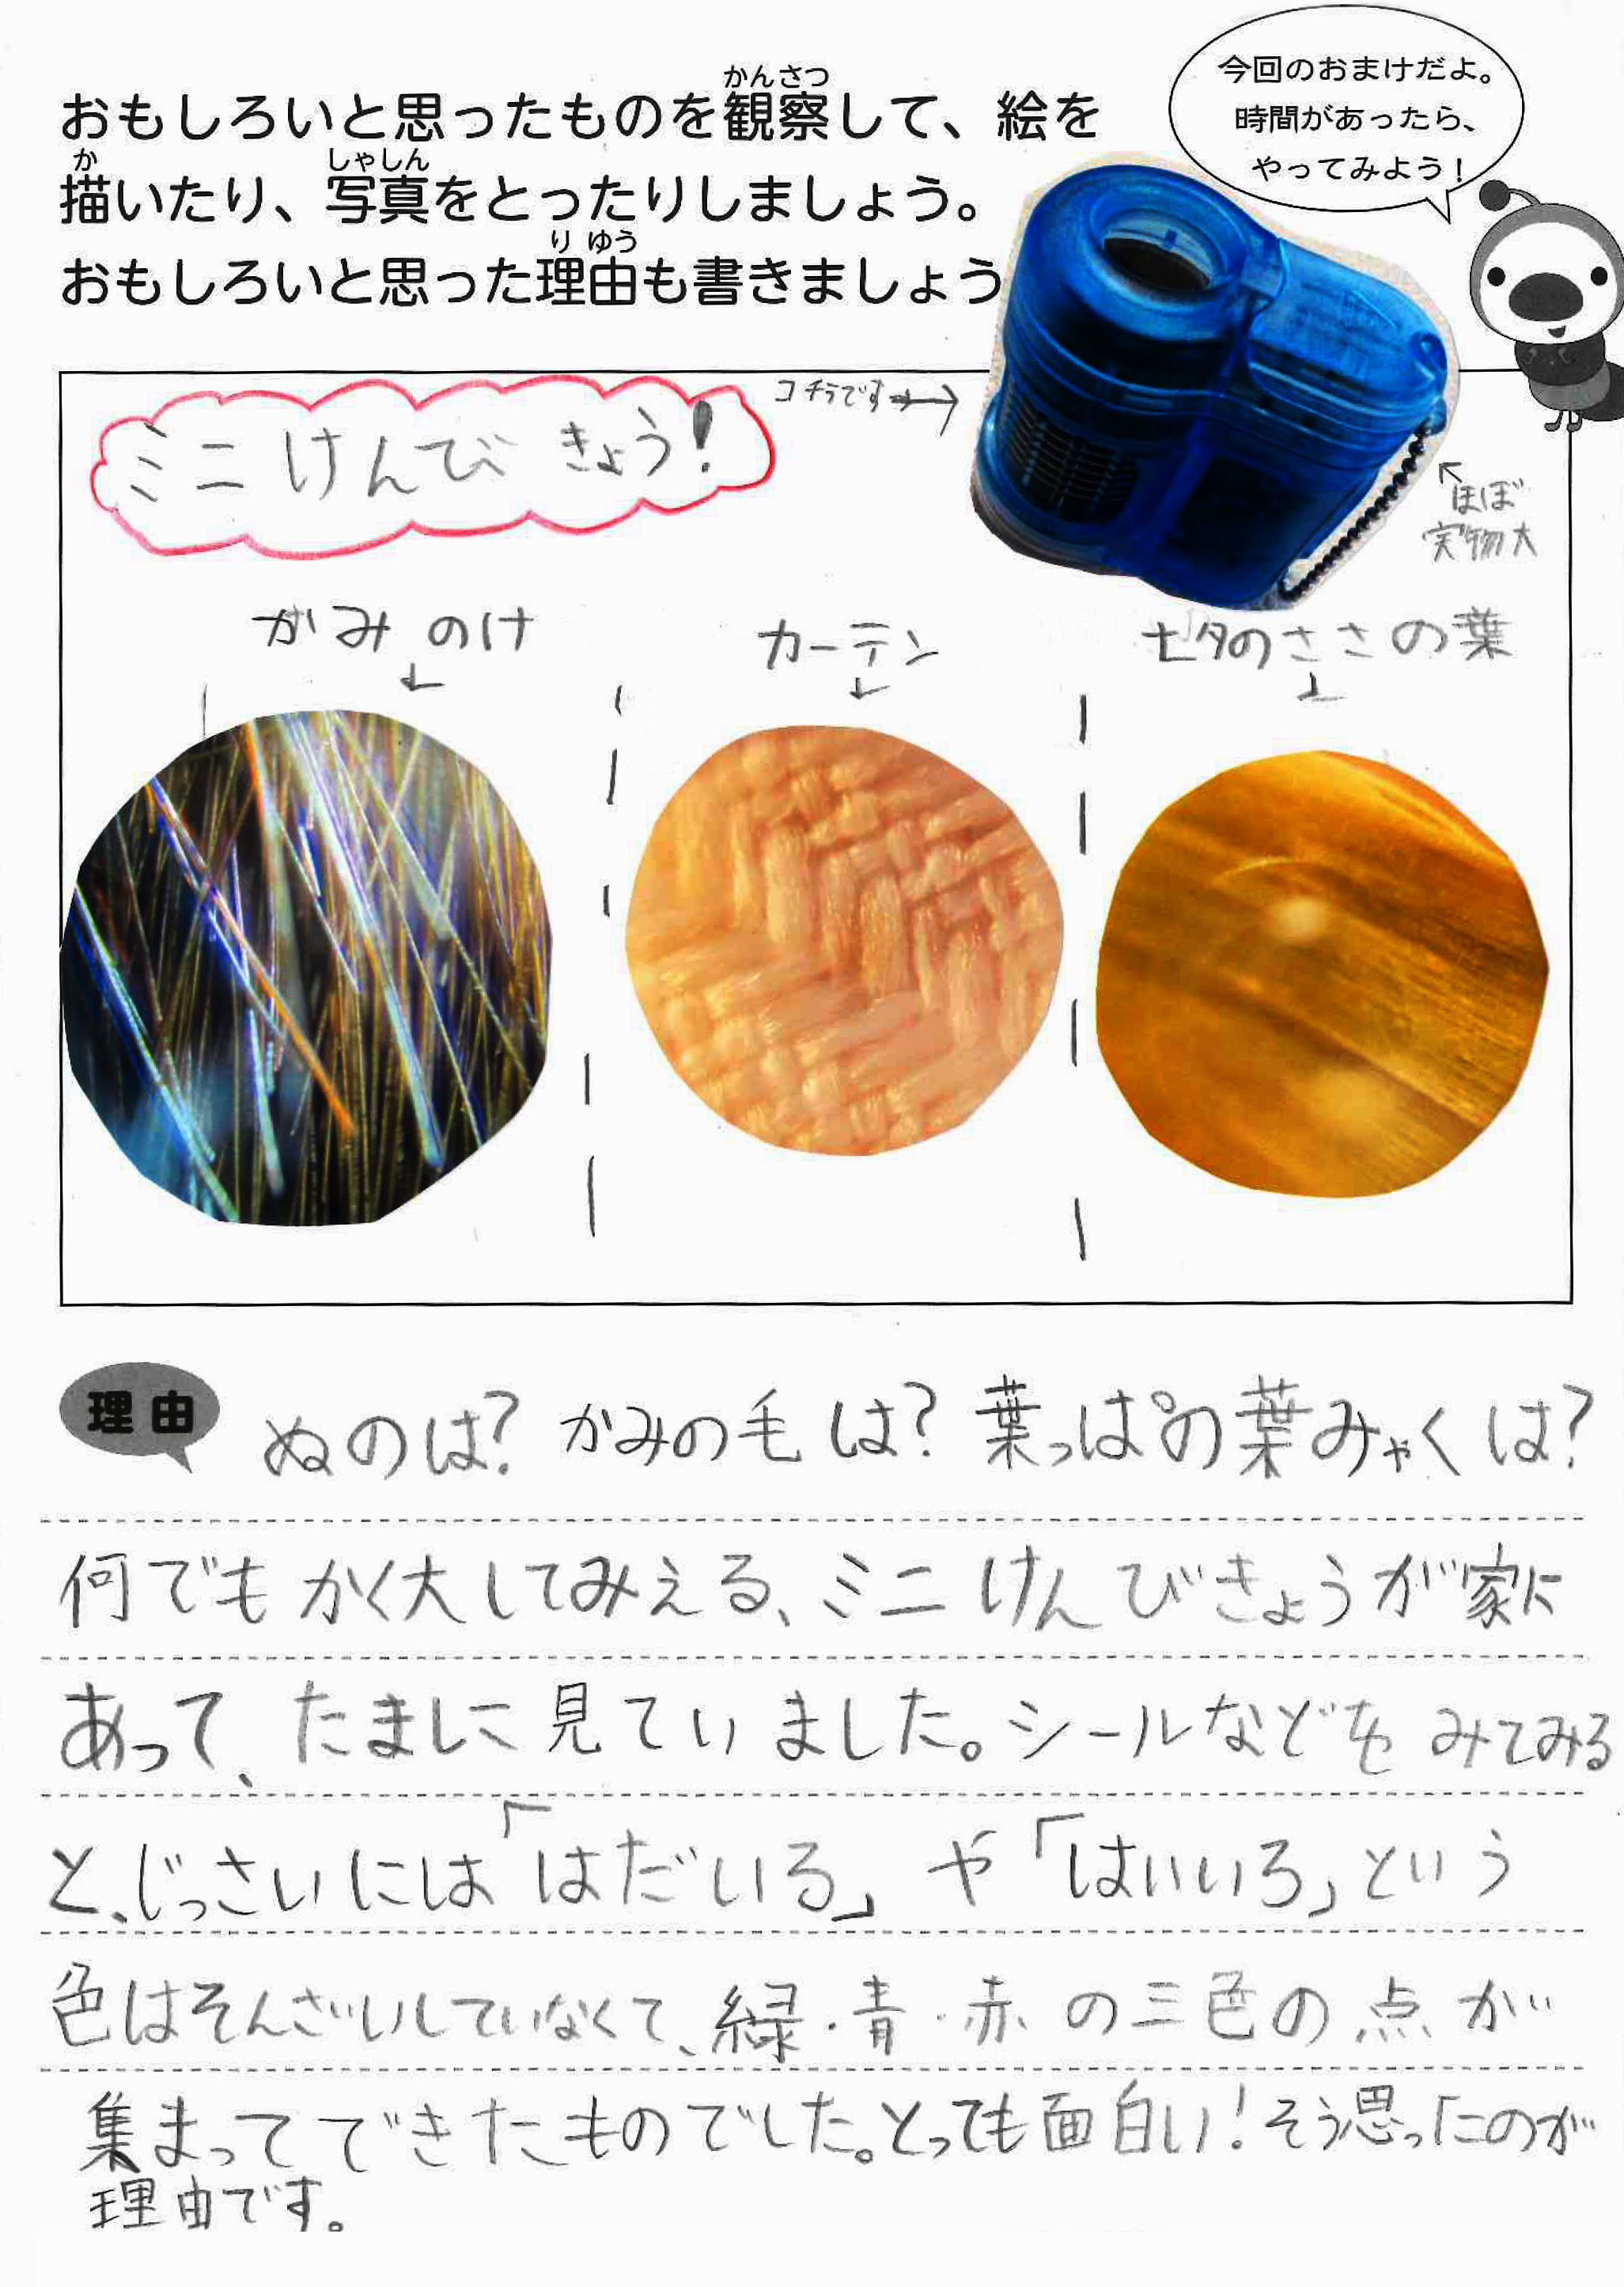 今回のおまけだよ。
時間があったら、
やってみよう！
おもしろいと思ったものを観察して、絵を
描いたり、写真をとったりしましょう。
おもしろいと思った理由も書きましょう
ミニけんびきょう！
コチラです→
ほぼ
実物大
かみのけ
カーテン
七夕のささの葉
理由
ぬのは？かみの毛は？葉っぱの葉みゃくは？
何でもかく大してみえる、ミニけんびきょうが家に
あって、たまに見ていました。シールなどをみてみる
と、じっさいには「はだいろ」や「はいいろ」という
色はそんざいしていなくて、緑・青・赤の三色の点が
集まってできたものでした。とっても面白い！そう思ったのが
理由です。